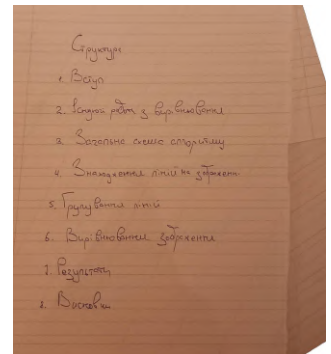 Структура
1. Вступ
2. Існуючі робот з вирівнювання
3. Загальна схема алгоритму
4. Знаходження ліній на зображенні
5. Групування ліній
6. Вирівнювання зображення
7. Результати
8. Висновки